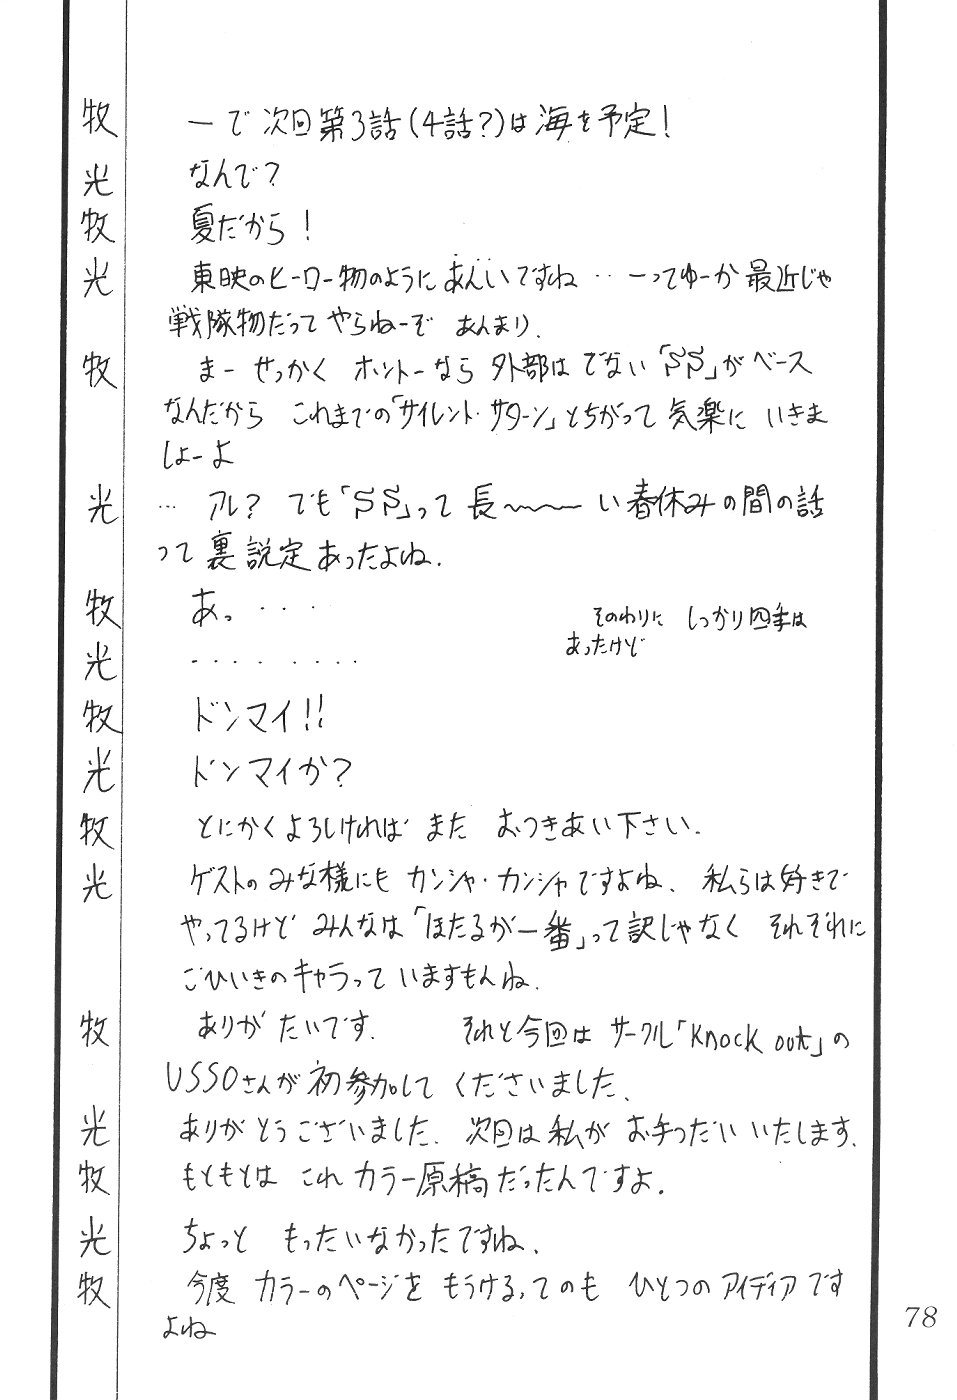 牧 ーで 次回第3話(4話?)は 海を予定!
光 なんで?
牧 夏だから!
光 東映のヒーロー物のように あんいですね … ーってゆーか 最近じゃ
戦隊物だって やらねーぞ あんまり.
牧 まー せっかく ホントーなら 外部は でない「SS」が ベース
なんだから これまでの「サイレント・サターン」とちがって 気楽に いきま
しょーよ
光 … アレ? でも「SS」って 長〜〜〜い 春休みの間の話
って 裏設定 あったよね.
牧 あっ・・・・
そのわりに しっかり四季は
あったけど
光 ・・・・・・・・
牧 ドンマイ!!
光 ドンマイか?
牧 とにかく よろしければ また おつきあい下さい.
光 ゲストの みな様にも カンシャ・カンシャですよね、 私らは好きで
やってるけど みんなは「ほたるが一番」って訳じゃなく それぞれに
ごひいきの キャラって いますもんね.
牧 ありがたいです. それと今回は サークル「Knock out」の
USSOさんが 初参加して くださいました、
光 ありがとうございました. 次回は 私が お手つだい いたします.
牧 もともとは これ カラー原稿だったんですよ.
光 ちょっと もったいなかったですね.
牧 今度 カラーのページを もうけるってのも ひとつの アイディアです
よね
78